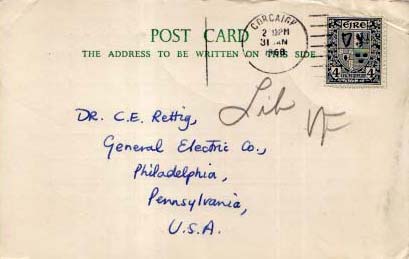 POST CARD
THE ADDRESS TO BE WRITTEN ON THIS SIDE
CORCAIGH
31
éIRe
4 4
Lib
DR. C.E. Rettig,
General Electric Co.,
Philadelphia,
Pennsylvania,
U.S.A.